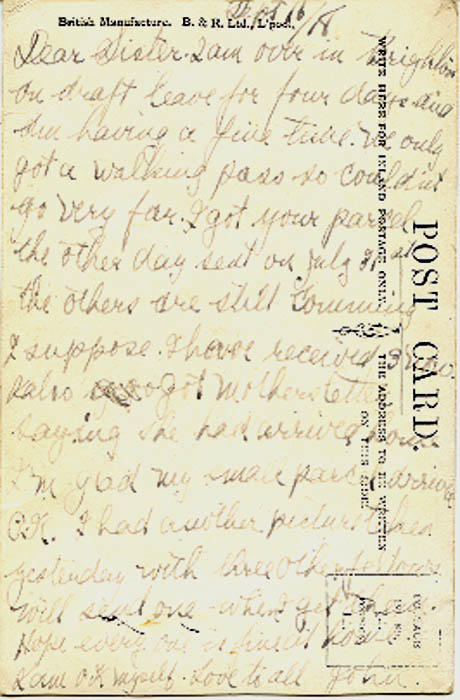 British Manufacture. B. & R. Ltd., L'pool.
Sept 16/18
Dear Sister I am over in Brighton
on draft leave for four days and
Am having a fine time. We only
got a walking pass so couldn't
go very far. I got your parcel
the other day sent on July 31st
the others are still comming
I suppose. I have received
I also got Mothers letter
saying she had arrived home
I'm glad my small parcel arrived
O.K. I had another picture taken
yesterday with three other fellows
will send one when I get them.
Hope every one is fine at home
I am O.K. myself. Love to all John.
POST CARD.
WRITE HERE FOR INLAND POSTAGE ONLY.
THE ADDRESS TO BE WRITTEN
ON THIS SIDE.